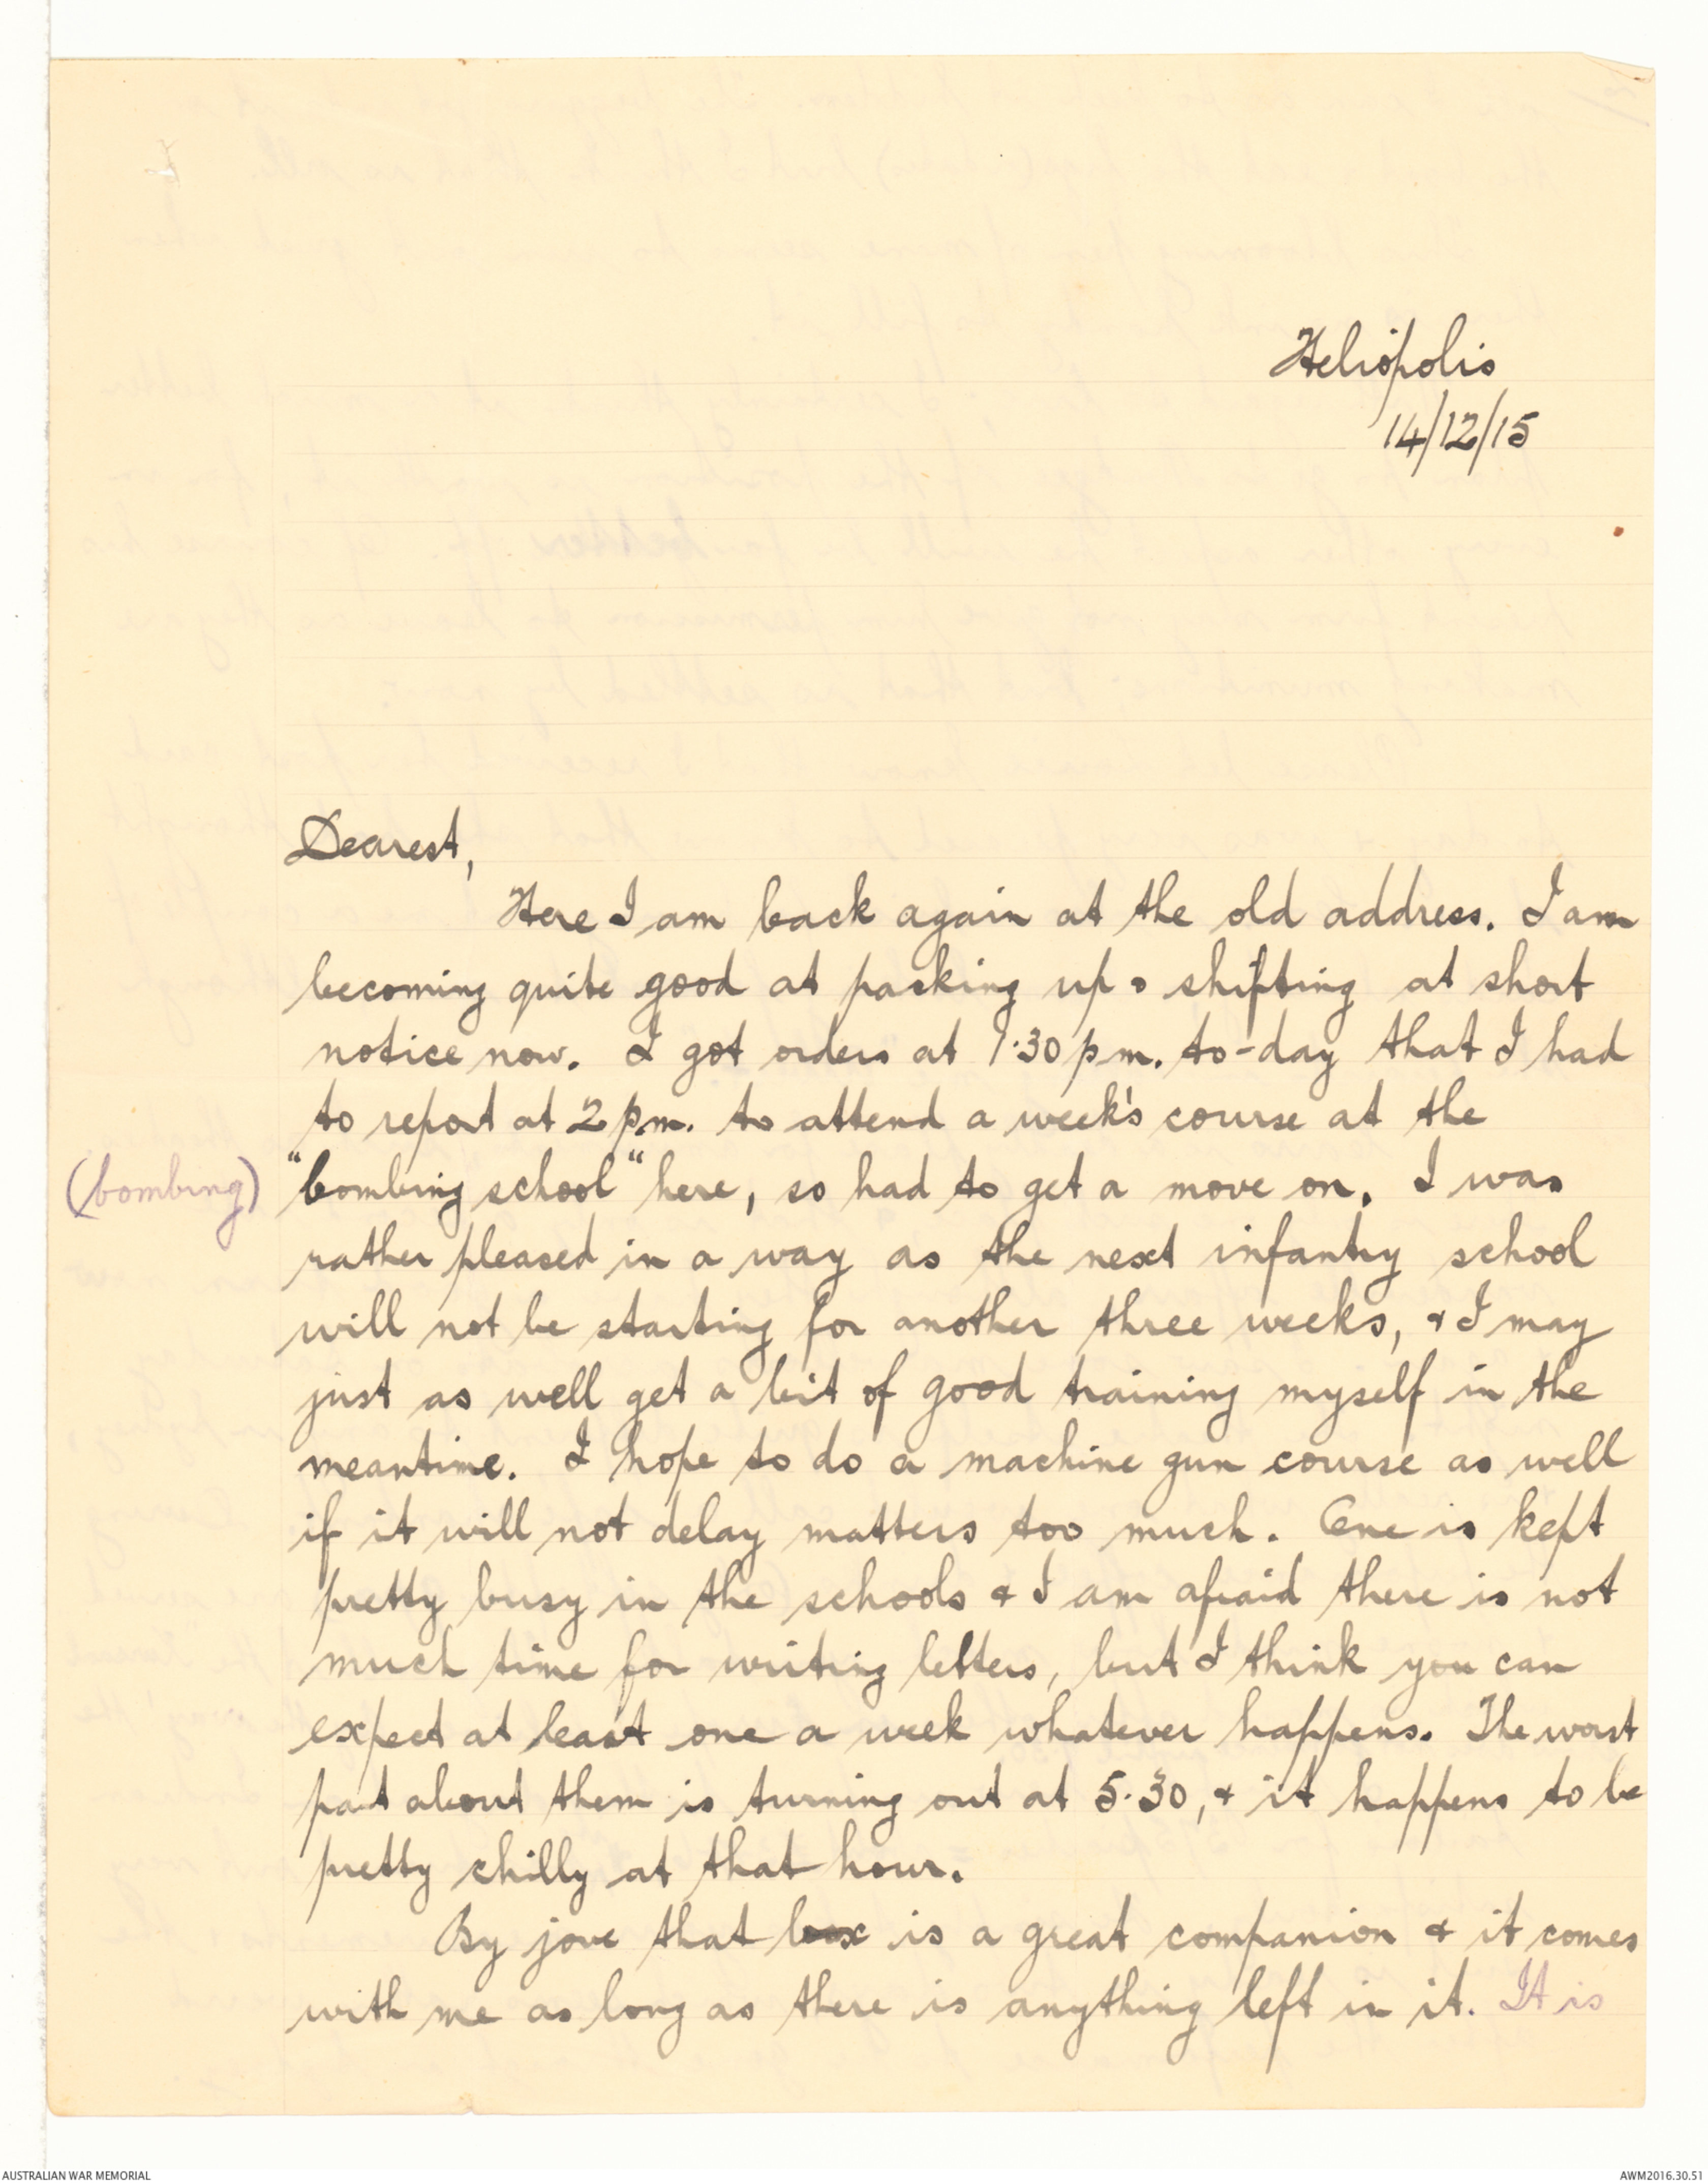 Heliopolis
14/12/15
Dearest,
Here I am back again at the old address. I am
becoming quite good at packing up & shifting at short
notice now. I got orders at 1·30 p.m. to-day that I had
to report at 2 p.m. to attend a week's course at the
(bombing) "bombing school" here, so had to get a move on. I was
rather pleased in a way as the next infantry school
will not be starting for another three weeks, & I may
just as well get a bit of good training myself in the
meantime. I hope to do a machine gun course as well
if it will not delay matters too much. One is kept
pretty busy in the schools & I am afraid there is not
much time for writing letters, but I think you can
expect at least one a week whatever happens. The worst
part about them is turning out at 5·30, & it happens to be
pretty chilly at that hour.
By jove that box is a great companion & it comes
with me as long as there is anything left in it. It is
AUSTRALIAN WAR MEMORIAL
AWM2016.30.51